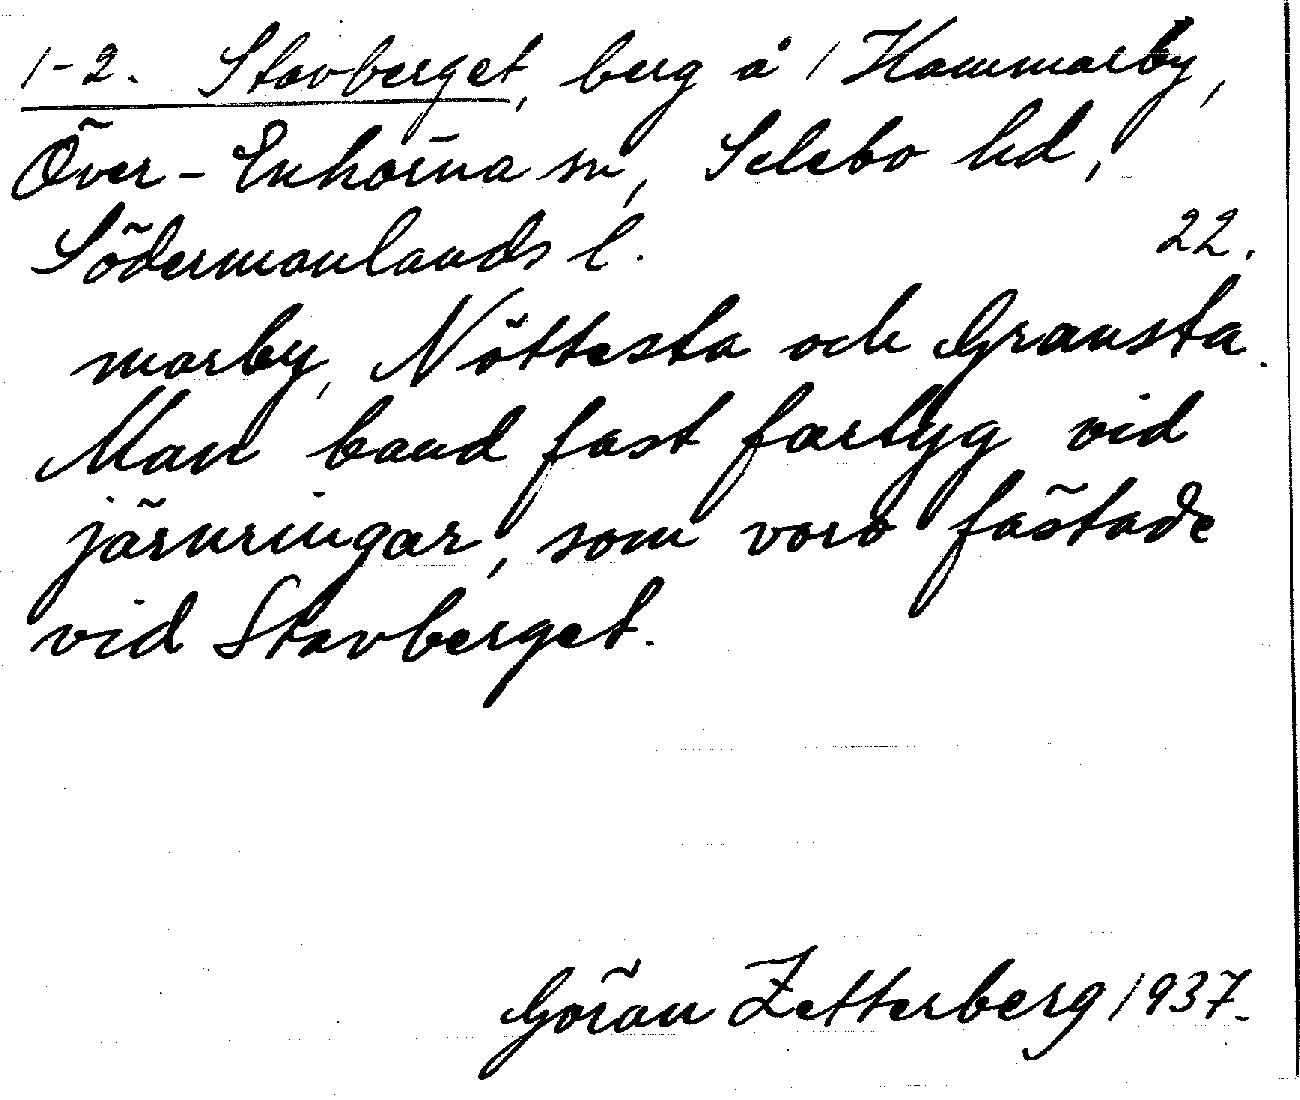 1-2. Stavberget, berg å 1 Hammarby,
Över-Enhörna sn, Selebo hd,
Södermanlands l. 22.
marby, Nöttesta och Gransta.
Man band fast fartyg vid
järnringar, som voro fästade
vid Stavberget.
Göran Zetterberg 1937.